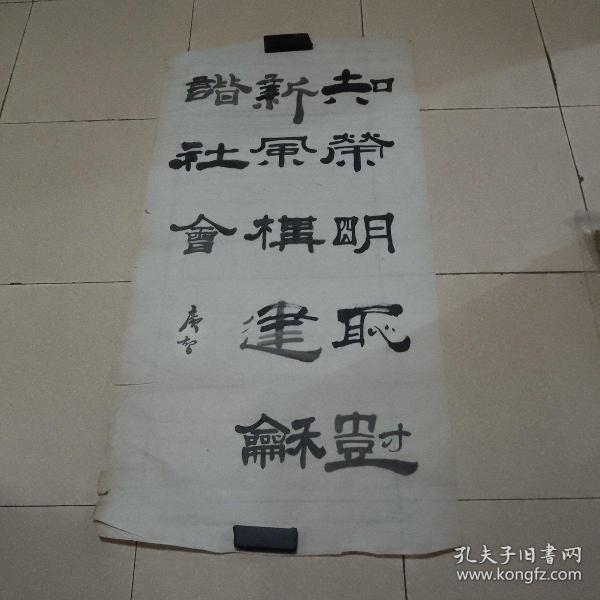 知榮明恥尌
新風構建龢
諧社會
孔夫子旧書网
www.kongfz.com